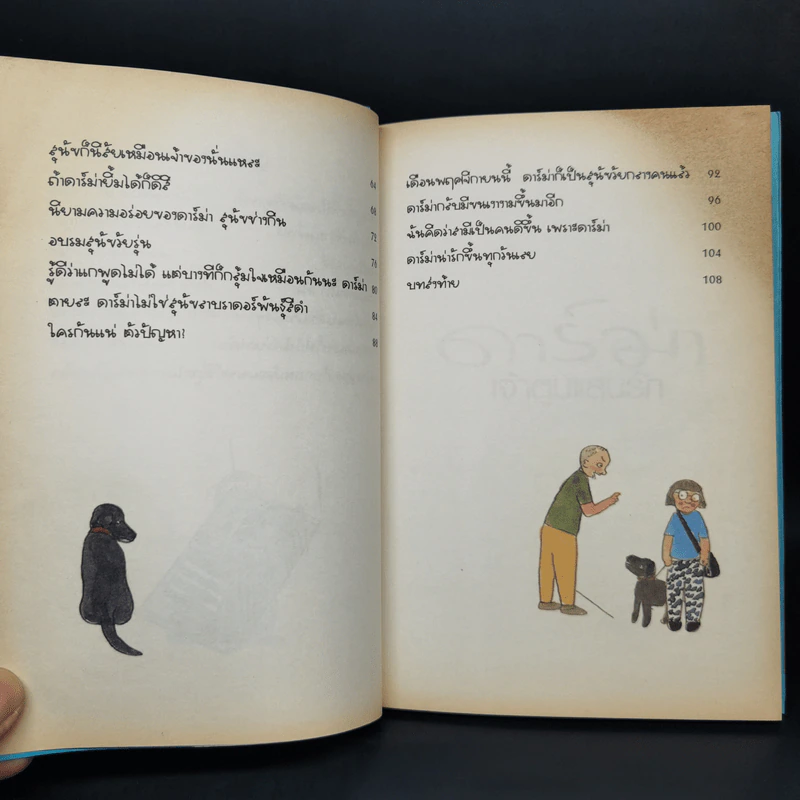 สุนัขก็นิสัยเหมือนเจ้าของนั่นแหละ 64
ถ้าดาร์ม่ายิ้มได้ก็ดีสิ 68
นิยามความอร่อยของดาร์ม่า สุนัขช่างกิน 72
อบรมสุนัขวัยรุ่น 76
รู้ดีว่าแกพูดไม่ได้ แต่บางทีก็กลุ้มใจเหมือนกันนะ ดาร์ม่า 80
ตายละ ดาร์ม่าไม่ใช่สุนัขลาบราดอร์พันธุ์สีดำ 84
ใครกันแน่ ตัวปัญหา? 88
เดือนพฤศจิกายนนี้ ดาร์ม่าก็เป็นสุนัขวัยกลางคนแล้ว 92
ดาร์ม่ากลับมีขนงอกงามขึ้นมาอีก 96
ฉันคิดว่าสามีเป็นคนดีขึ้น เพราะดาร์ม่า 100
ดาร์ม่าน่ารักขึ้นทุกวันเลย 104
บทส่งท้าย 108